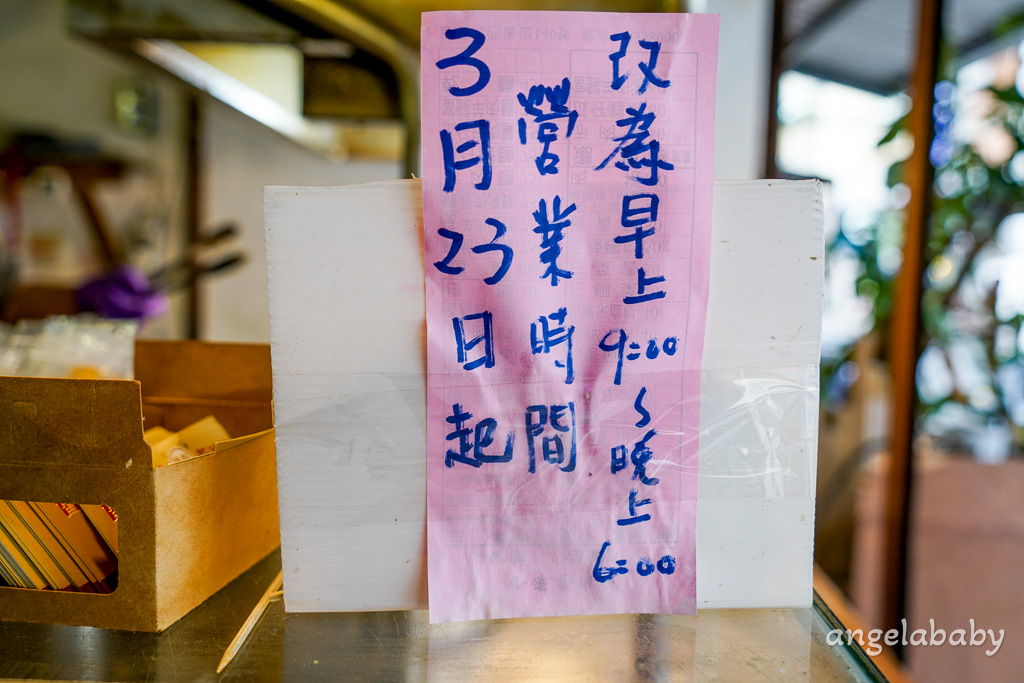 3月23日起
營業時間
改為早上9:00~晚上6:00
angelababy